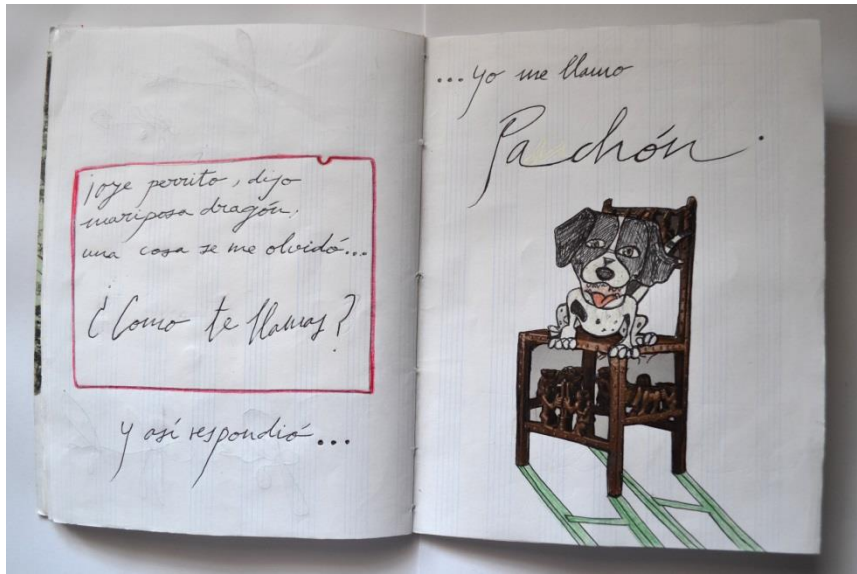 ¡oye perrito, dijo
mariposa dragón,
una cosa se me olvidó...
¿Como te llamas?
y así respondió...
...yo me llamo
Pachón.